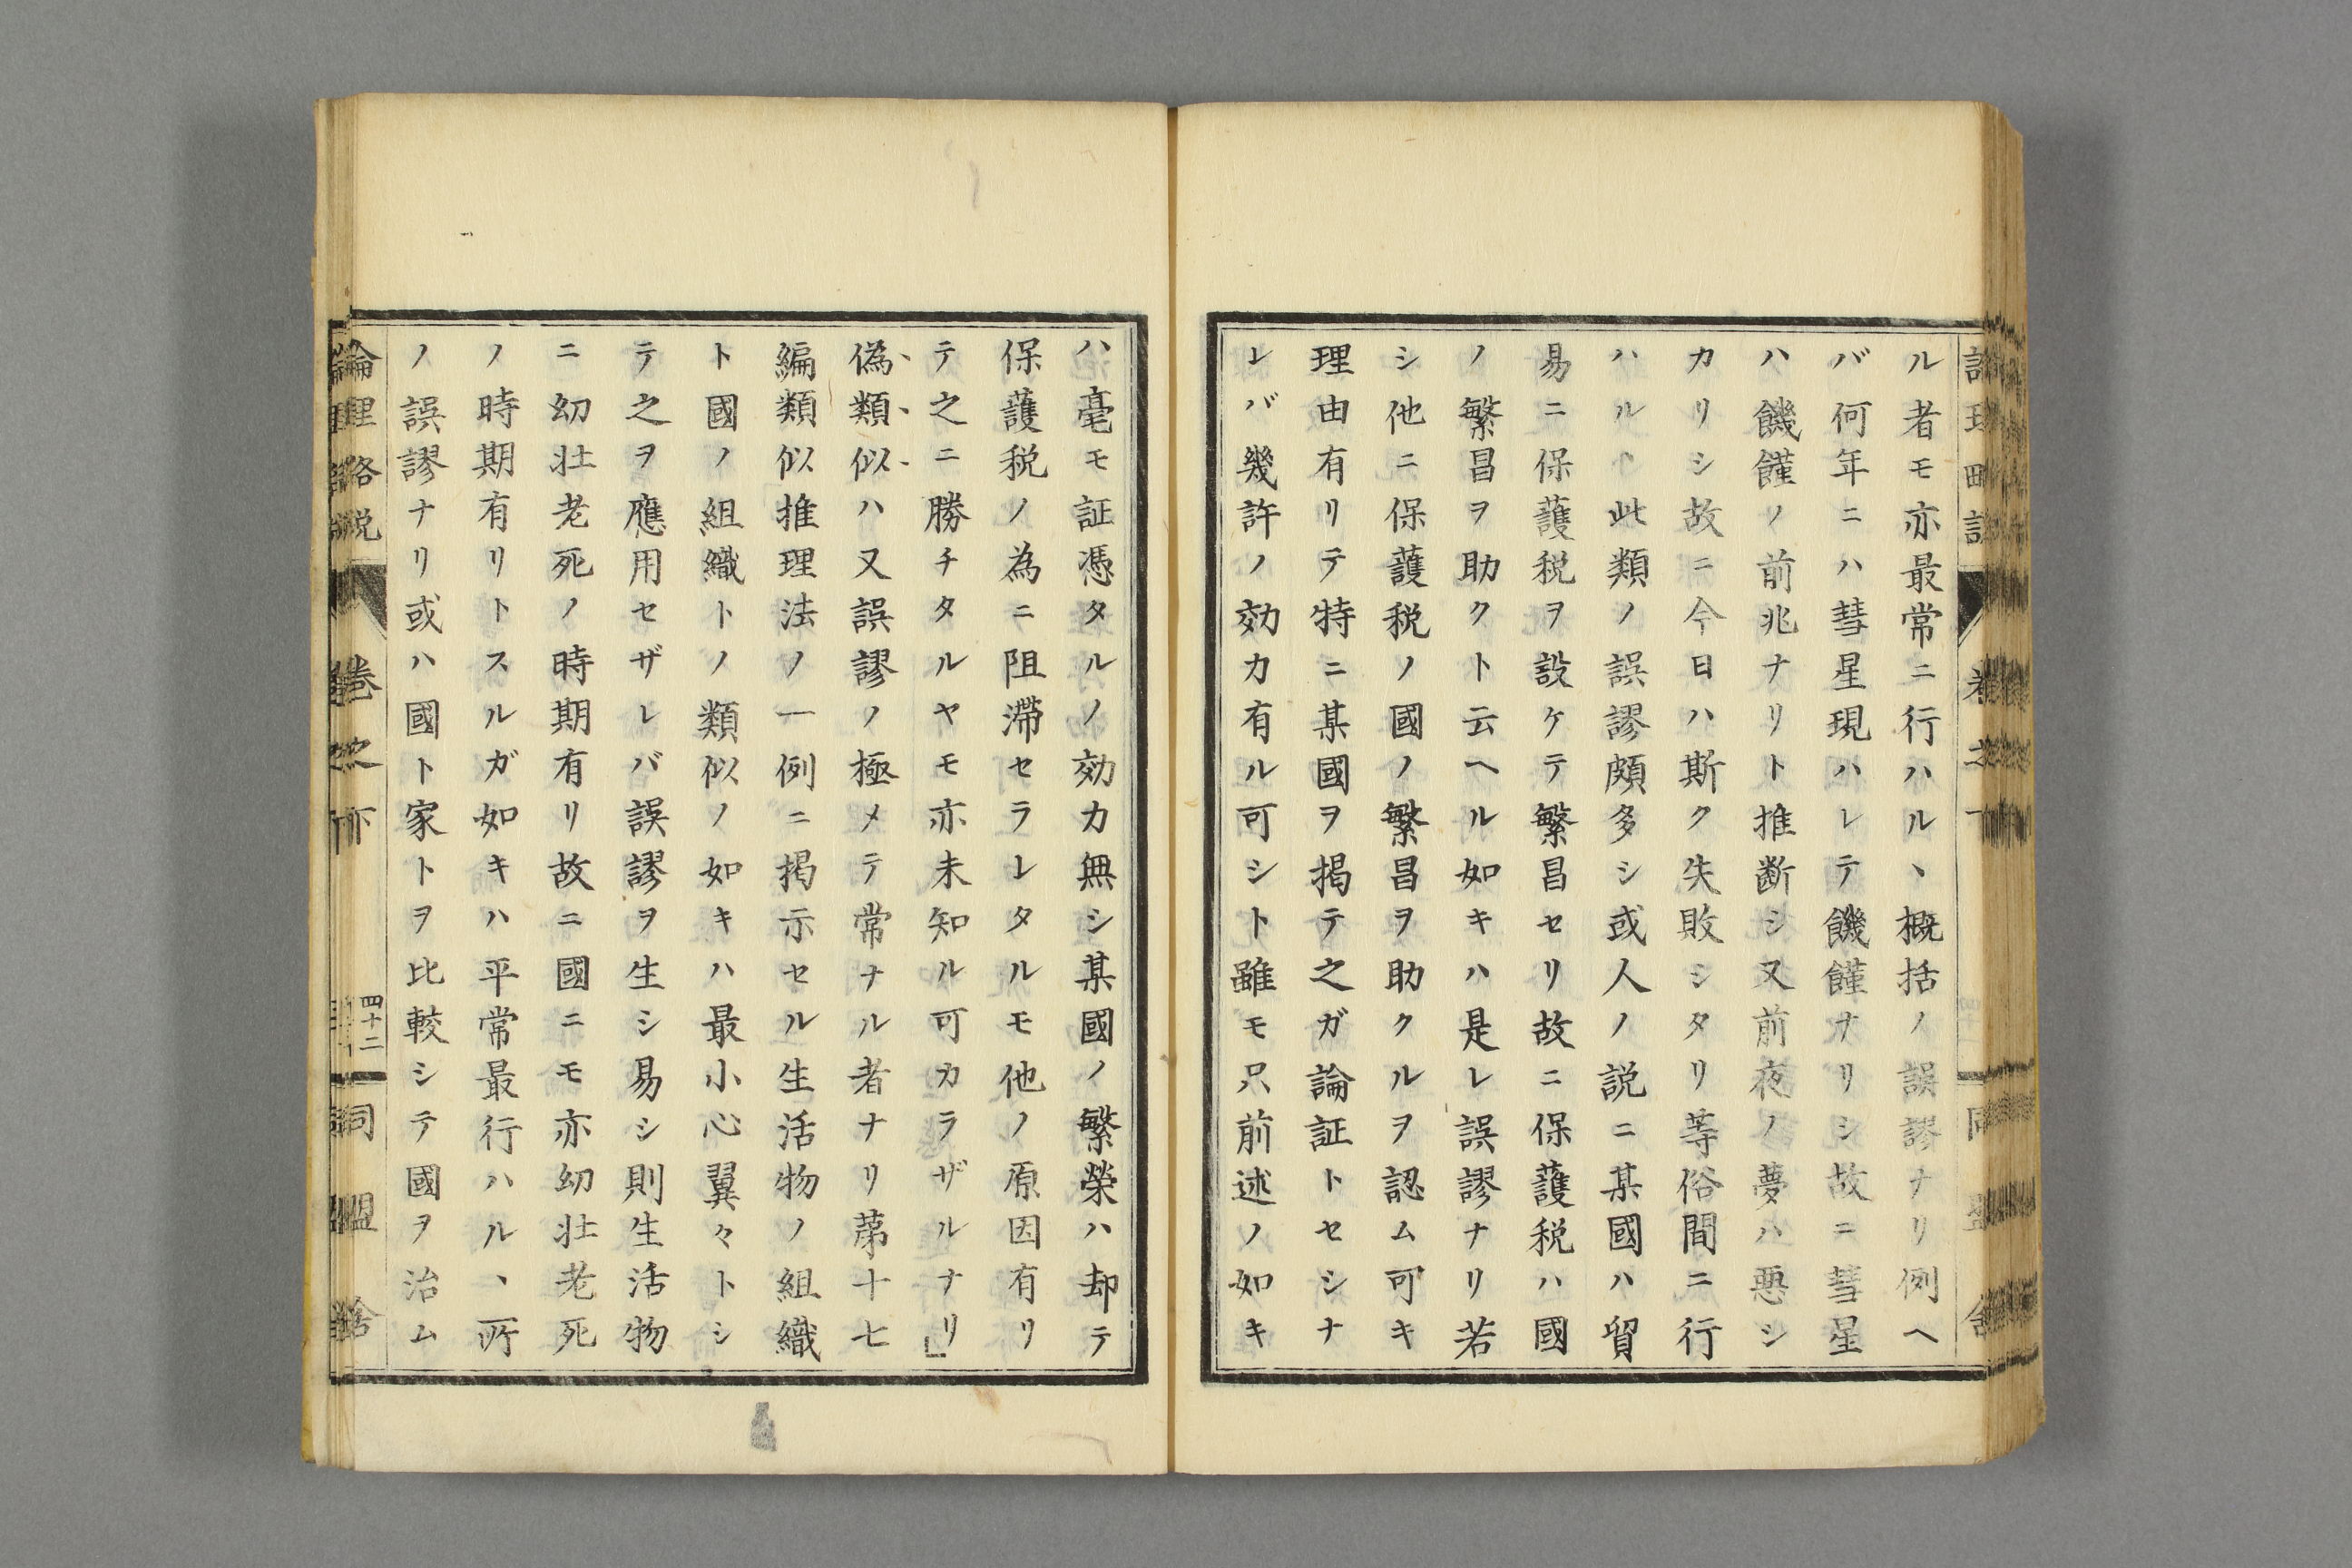 ル者モ亦最常ニ行ハルヽ概括ノ誤謬ナリ例ヘ
バ何年ニハ彗星現ハレテ饑饉ナリシ故ニ彗星
ハ饑饉ノ前兆ナリト推断シ又前夜ノ夢ハ悪シ
カリシ故ニ今日ハ斯ク失敗シタリ等俗間ニ行
ハルヽ此類ノ誤謬頗多シ或人ノ説ニ某國ハ貿
易ニ保護税ヲ設ケテ繁昌セリ故ニ保護税ハ國
ノ繁昌ヲ助クト云ヘル如キハ是レ誤謬ナリ若
シ他ニ保護税ノ國ノ繁昌ヲ助クルヲ認ム可キ
理由有リテ特ニ某國ヲ掲テ之ガ論証トセシナ
レバ幾許ノ効力有ル可シト雖モ只前述ノ如キ
ハ毫モ証憑タルノ効力無シ某國ノ繁榮ハ却テ
保護税ノ為ニ阻滞セラレタルモ他ノ原因有リ
テ之ニ勝チタルヤモ亦未知ル可カラザルナリ」
偽類似ハ又誤謬ノ極メテ常ナル者ナリ苐十七
編類似推理法ノ一例ニ掲示セル生活物ノ組織
ト國ノ組織トノ類似ノ如キハ最小心翼々トシ
テ之ヲ應用セザレバ誤謬ヲ生シ易シ則生活物
ニ幼壮老死ノ時期有リ故ニ國ニモ亦幼壮老死
ノ時期有リトスルガ如キハ平常最行ハルヽ所
ノ誤謬ナリ或ハ國ト家トヲ比較シテ國ヲ治ム
論理略説 巻之下 四十二 同盟舎